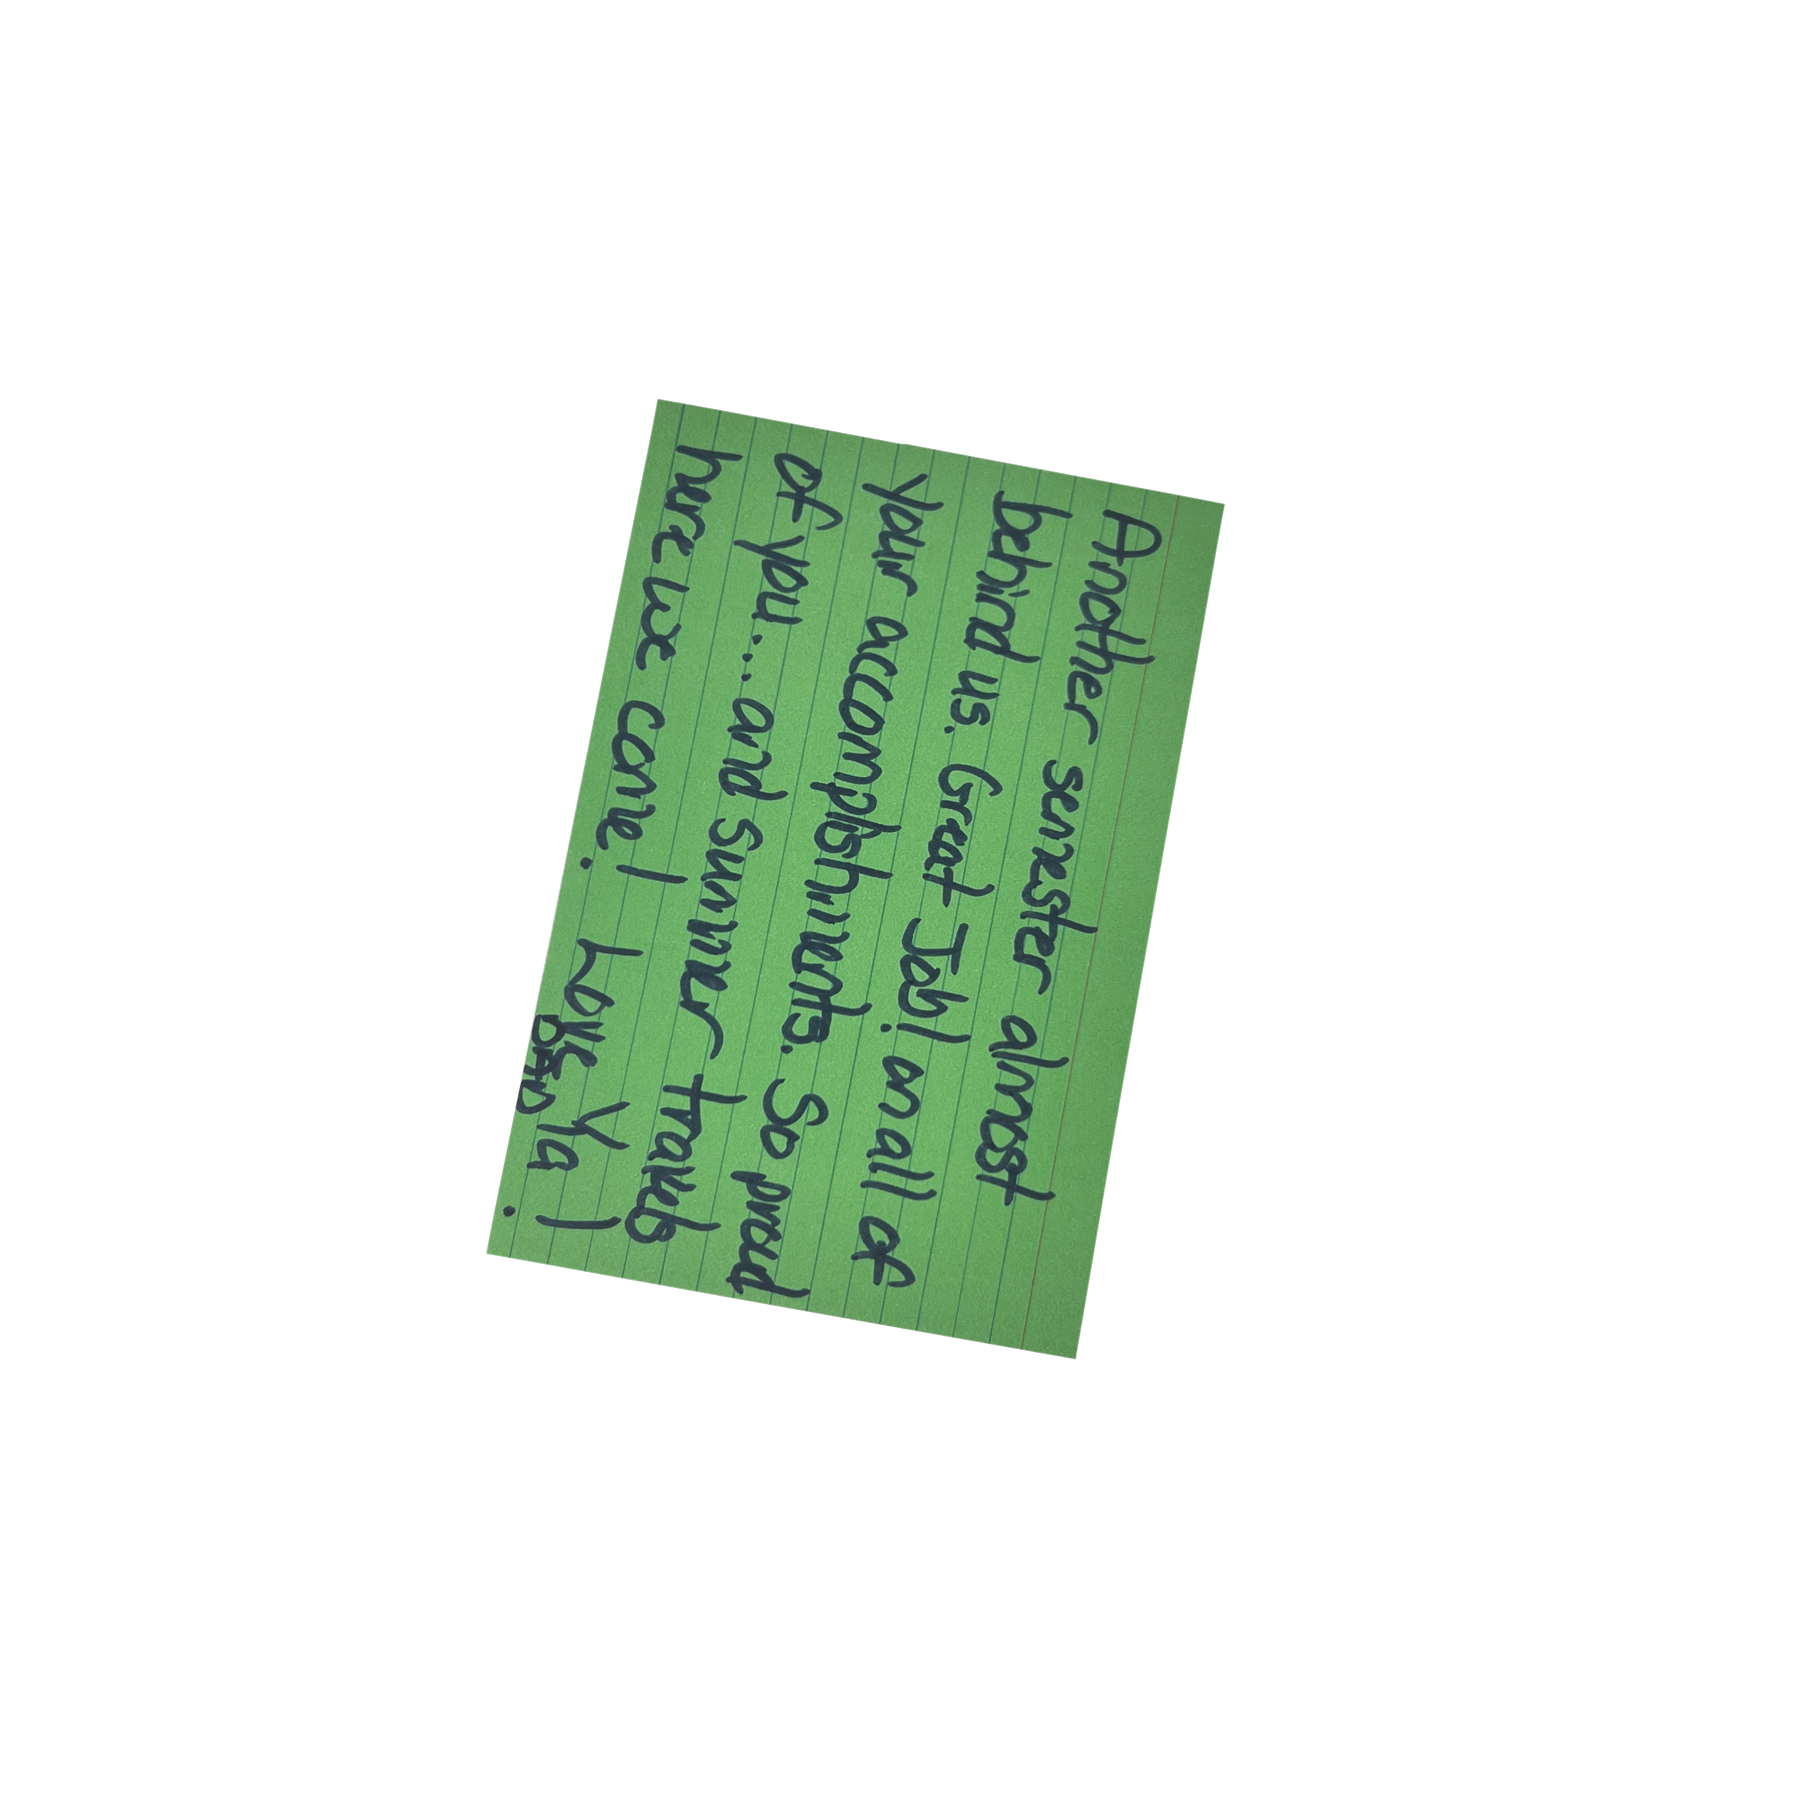 Another semester almost
behind us. Great Job! on all of
your accomplishments. So proud
of you... and summer travels
here we come! Love Ya!
DAD